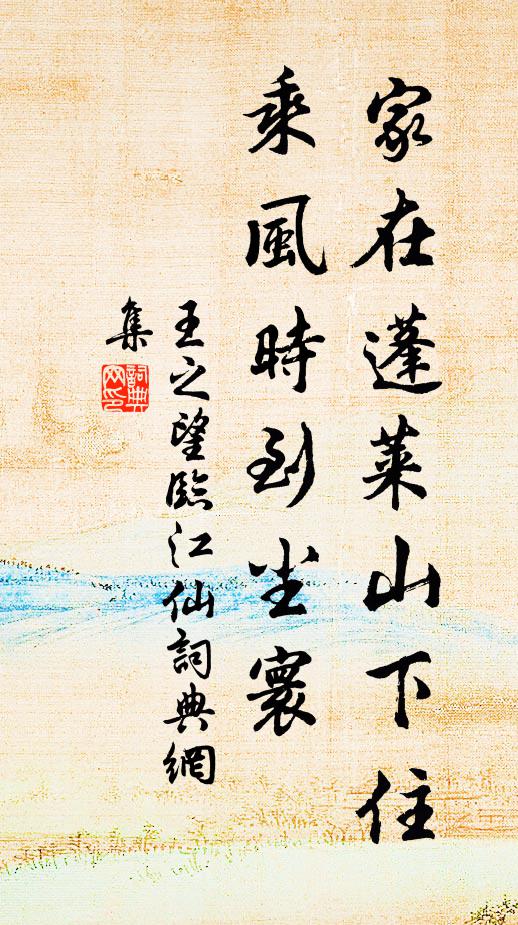 家在蓬萊山下住
乘風時到尘寰
王之望臨江仙詞典網
集
詞典
网印